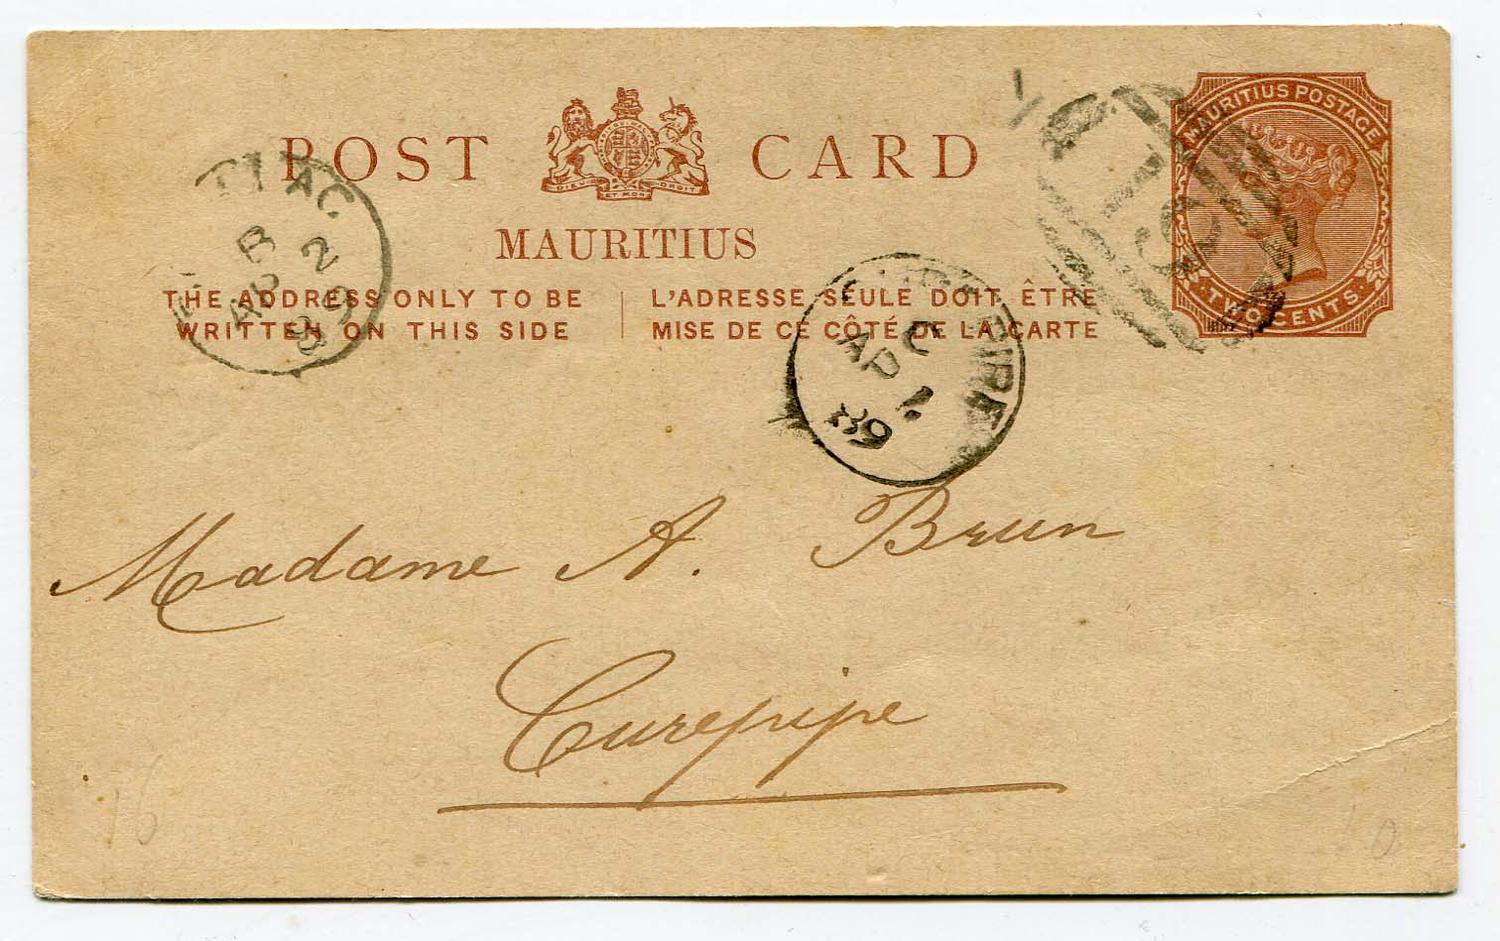 POST CARD
DIEU ET MON DROIT
MAURITIUS
THE ADDRESS ONLY TO BE
WRITTEN ON THIS SIDE
L'ADRESSE SEULE DOIT ÊTRE
MISE DE CE CÔTÉ DE LA CARTE
MAURITIUS POSTAGE
TWO CENTS
B
2
89
C
AP 1
89
Madame A. Brun
Curepipe
16